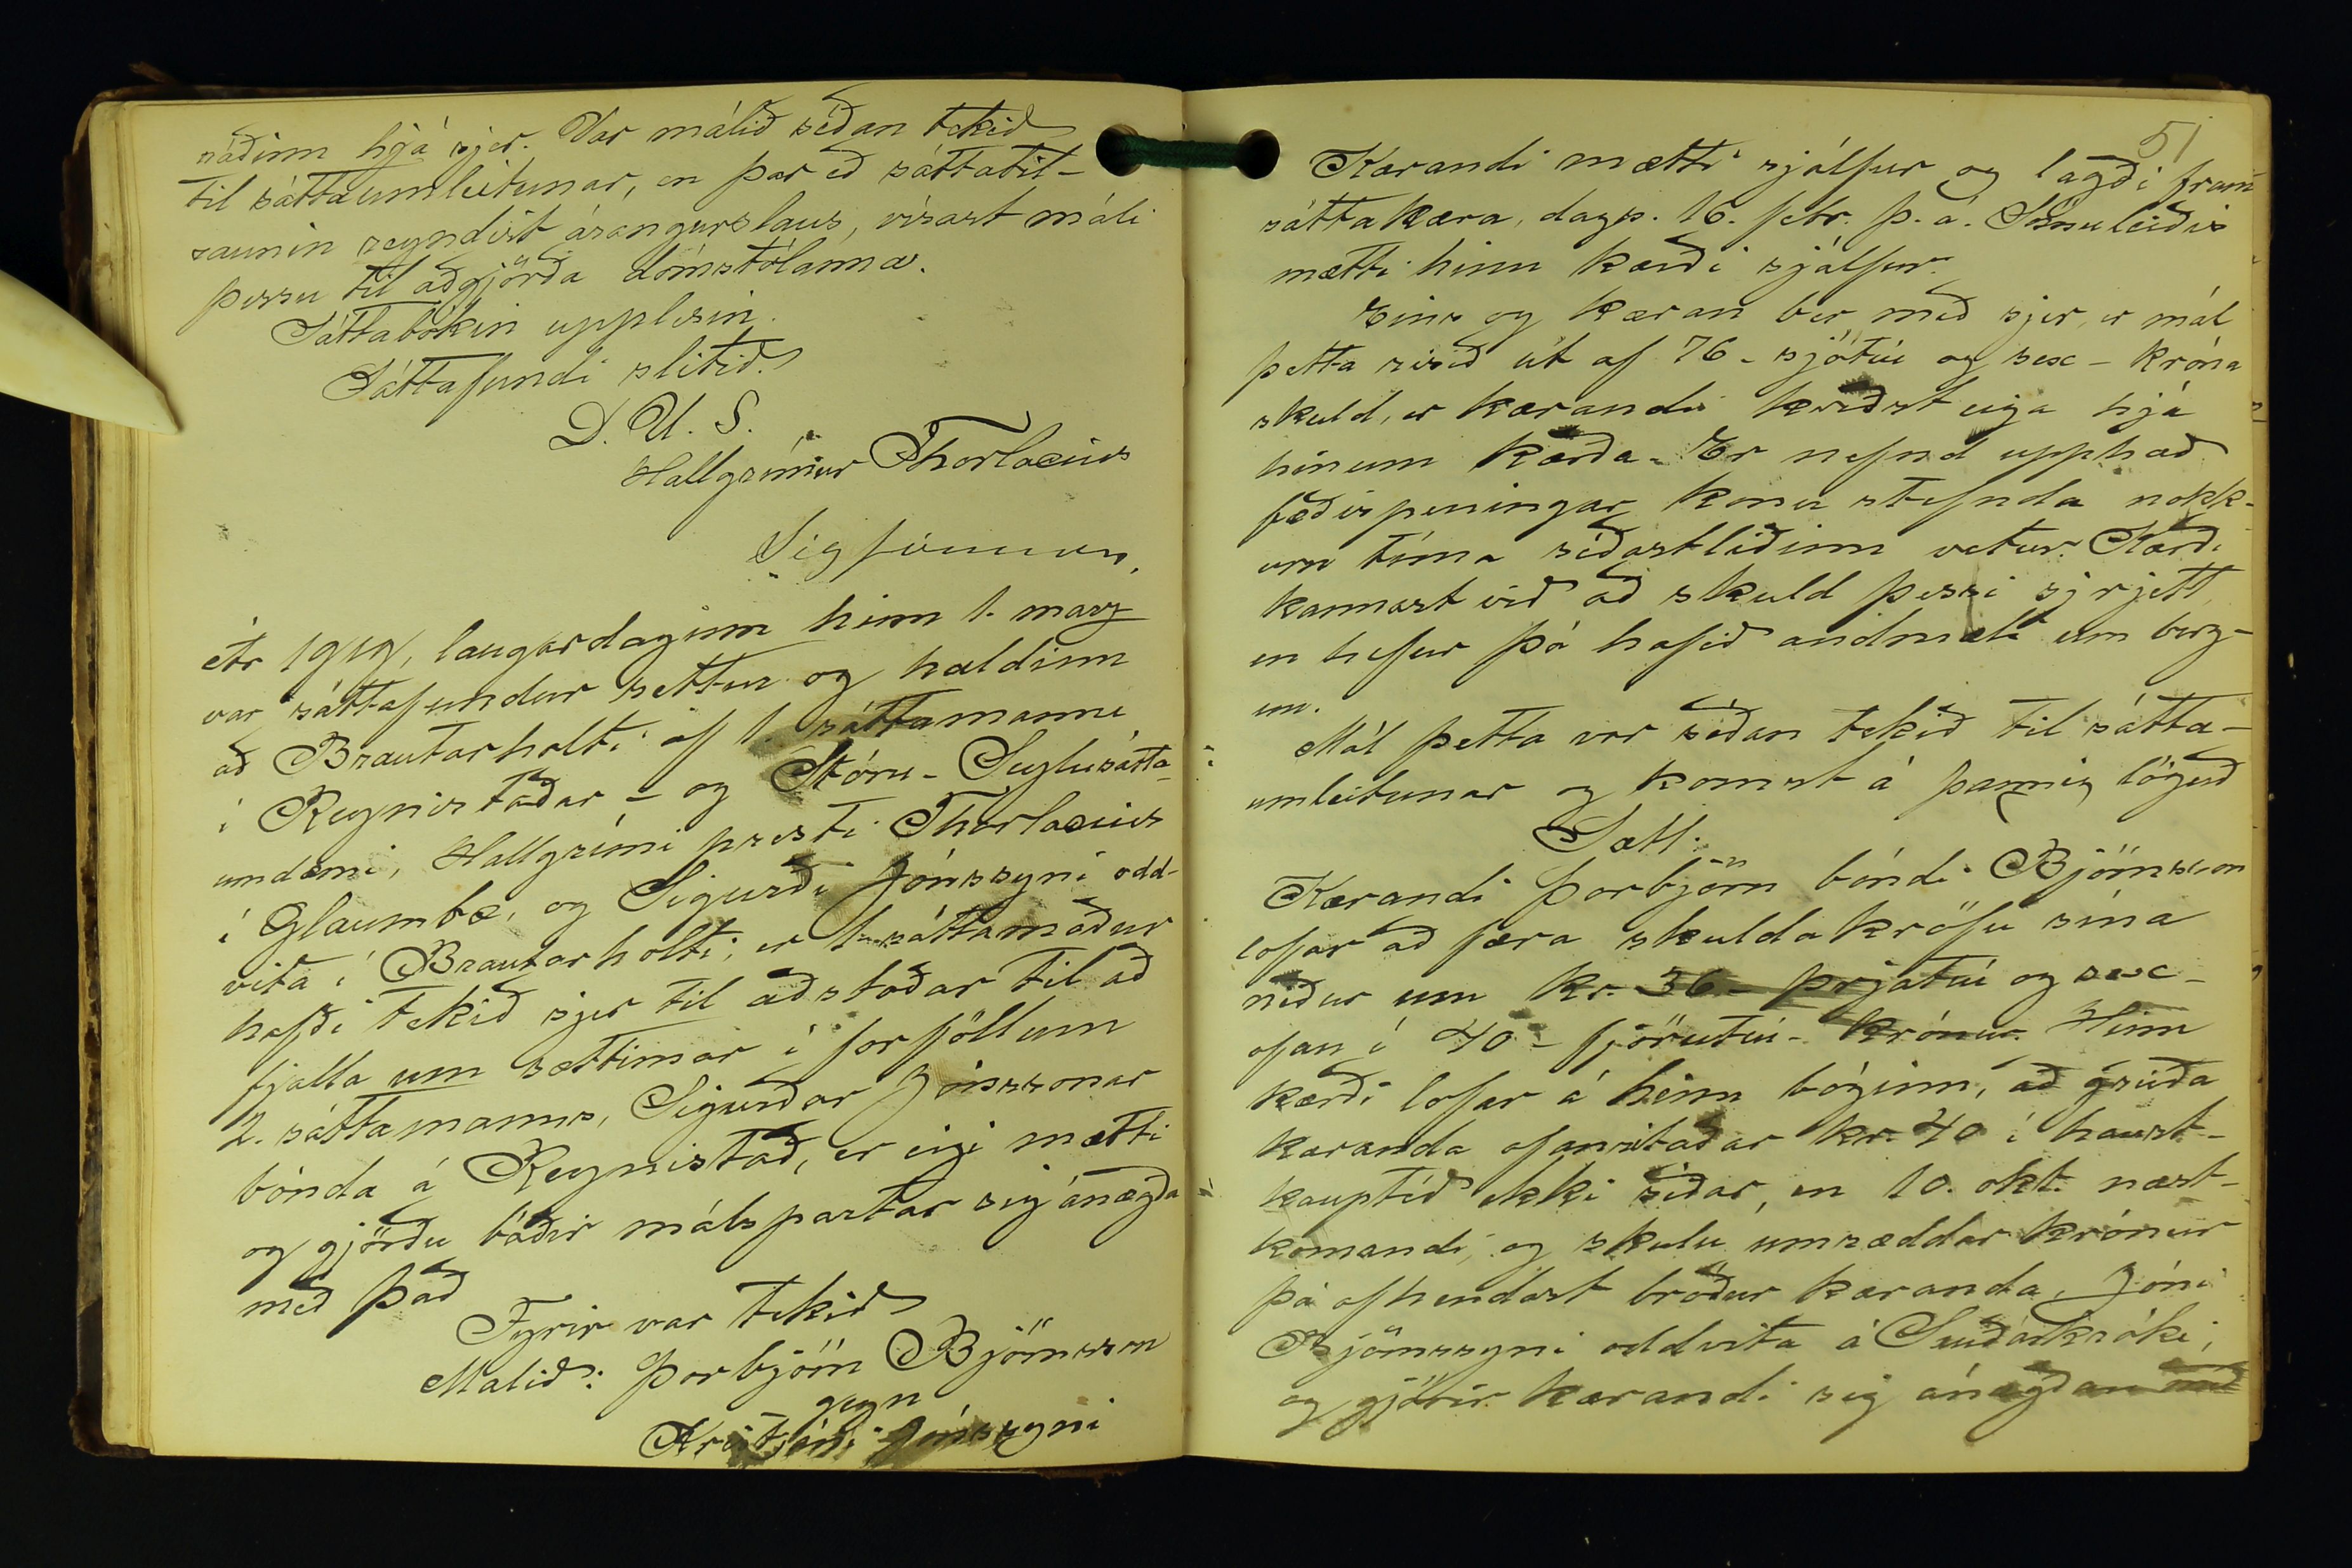 ráðinn hjá sjer. Var málið síðan tekið
til sáttaumleitunar, en þar eð sáttatil-
raunin reyndist árangurslaus, vísast máli
þessu til aðgjörða dómstólanna.
Sáttabókin upplesin.
Sáttafundi slitið.
D. U. S.
Hallgrímur Thorlacius
Ár 1919, laugardaginn hinn 1. marz
var sáttafundur settur og haldinn
að Brautarholti af 1. sáttamanni
í Reynistaðar- og Stóru-Seylusátta-
umdæmi, Hallgrími presti Thorlacius
í Glaumbæ, og Sigurði Jónssyni odd-
vita í Brautarholti, er 1. sáttamaður
hafði tekið sjer til aðstoðar til að
fjalla um sættirnar í forföllum
2. sáttamanns, Sigurðar Jónssonar
bónda á Reynistað, er eigi mætti
og gjörðu báðir málspartar sig ánægða
með það
Fyrir var tekið
Málið: Þorbjörn Björnsson
gegn
Kristjáni Jónssyni
51
Kærandi mætti sjálfur og lagði fram
sáttakæra, dags. 16. febr. þ. á. Sömuleiðis
mætti hinn kærði sjálfur.
Eins og kæran ber með sjer, er mál
þetta risið út af 76 - sjötíu og sex - króna
skuld, er kærandi kveðst eiga hjá
hinum kærða. Er nefnd upphæð
fæðispeningar konu stefnda nokk-
urn tíma síðastliðinn vetur. Kærði
kannast við að skuld þessi sje rjett,
en hefur þó hafið andmæli um borg-
un.
Mál þetta var síðan tekið til sátta-
umleitunar og komst á þannig löguð
Sætt:
Kærandi Þorbjörn bóndi Björnsson
lofar að færa skuldakröfu sína
niður um kr. 36 - þrjátíu og sex -
ofan í 40 - fjörutíu - krónur. Hinn
kærði lofar á hinn bóginn, að greiða
kæranda ofanritaðar kr. 40 í haust-
kauptíð ekki síðar, en 10. okt. næst-
komandi, og skulu umræddar krónur
þá afhendast bróður kæranda, Jóni
Björnssyni oddvita á Sauðárkróki,
og gjörir kærandi sig ánægðan með